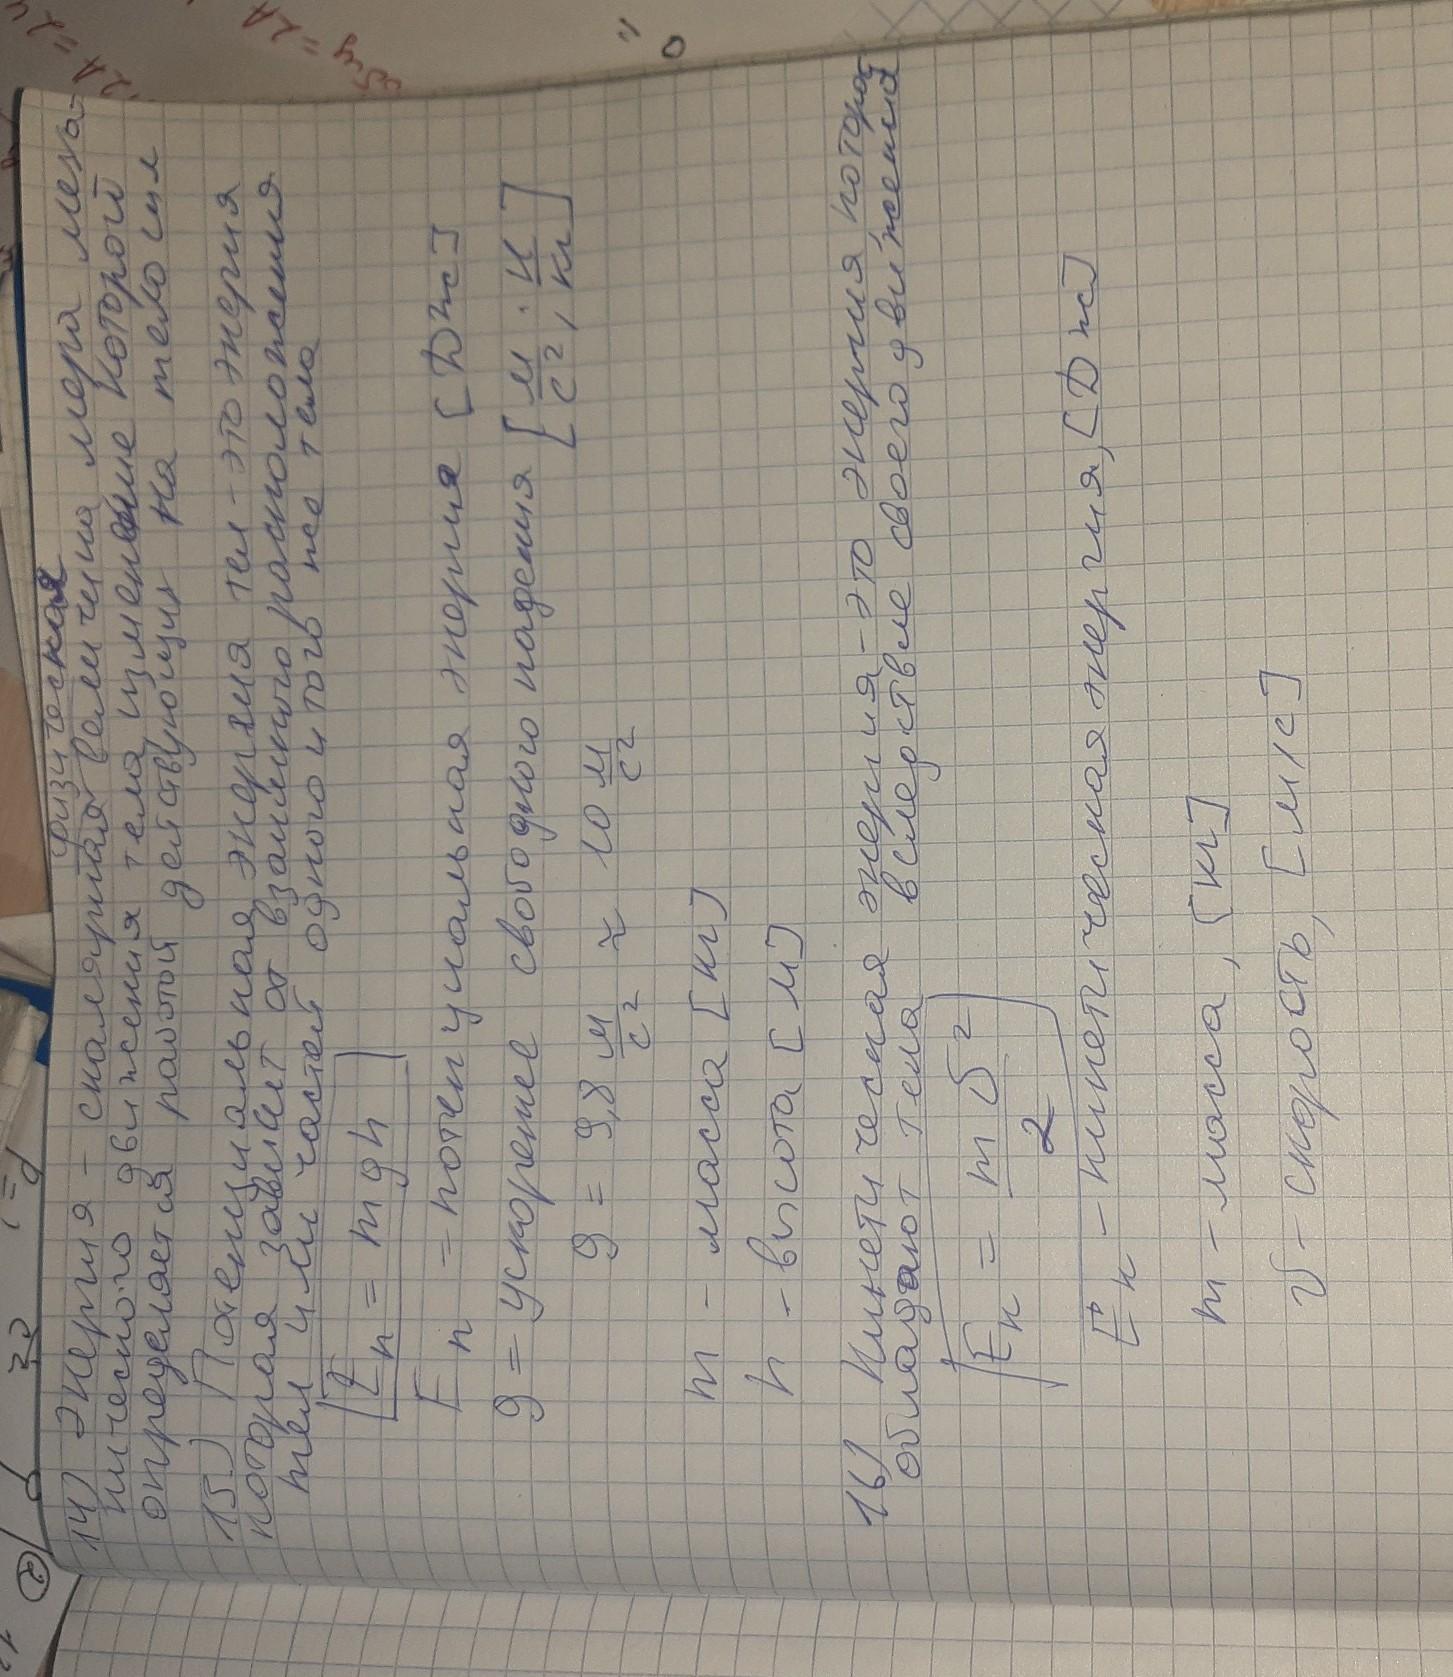 физическая
14) Энергия - скалярная величина мера меха-
нического движения тела изменение которой
определяется работой действующих на тело сил
15) Потенциальная энергия тел - это энергия
которая зависит от взаимного расположения
тел или частей одного и того же тела
Eп = mgh
Eп = потенциальная энергия [Дж]
g = ускорение свободного падения [м/с², Н/кг]
g = 9,8 м/с² ≈ 10 м/с²
m - масса [кг]
h - высота [м]
16) Кинетическая энергия - это энергия которой
обладают тела вследствие своего движения
Eк = mυ²/2
Eк - кинетическая энергия, [Дж]
m - масса, [кг]
υ - скорость, [м/с]